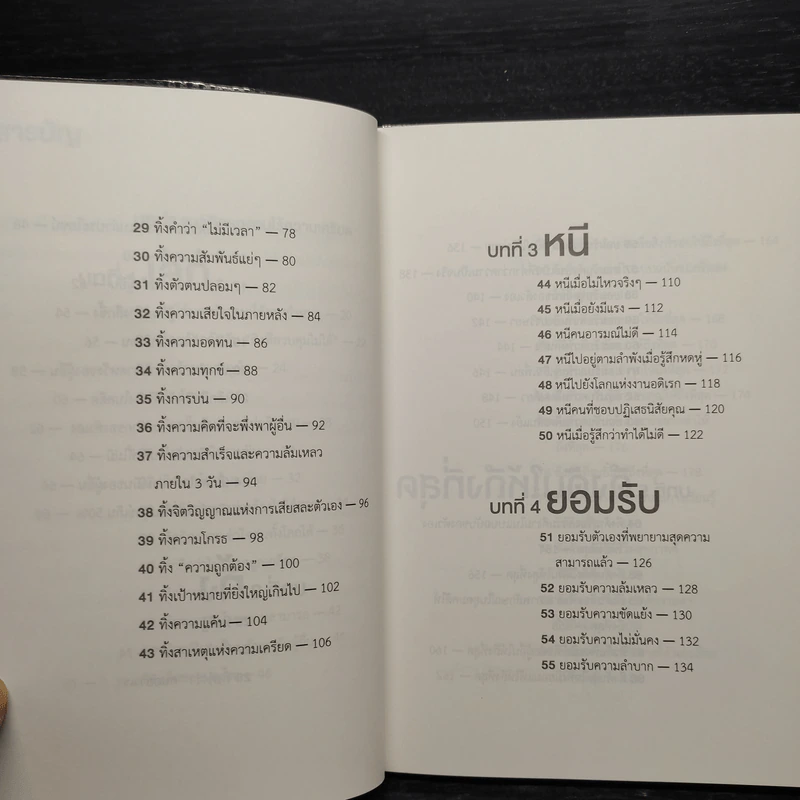 29 ทิ้งคำว่า “ไม่มีเวลา” — 78
30 ทิ้งความสัมพันธ์แย่ๆ — 80
31 ทิ้งตัวตนปลอมๆ — 82
32 ทิ้งความเสียใจในภายหลัง — 84
33 ทิ้งความอดทน — 86
34 ทิ้งความทุกข์ — 88
35 ทิ้งการบ่น — 90
36 ทิ้งความคิดที่จะพึ่งพาผู้อื่น — 92
37 ทิ้งความสำเร็จและความล้มเหลว
ภายใน 3 วัน — 94
38 ทิ้งจิตวิญญาณแห่งการเสียสละตัวเอง — 96
39 ทิ้งความโกรธ — 98
40 ทิ้ง “ความถูกต้อง” — 100
41 ทิ้งเป้าหมายที่ยิ่งใหญ่เกินไป — 102
42 ทิ้งความแค้น — 104
43 ทิ้งสาเหตุแห่งความเครียด — 106
บทที่ 3 หนี
44 หนีเมื่อไม่ไหวจริงๆ — 110
45 หนีเมื่อยังมีแรง — 112
46 หนีคนอารมณ์ไม่ดี — 114
47 หนีไปอยู่ตามลำพังเมื่อรู้สึกหดหู่ — 116
48 หนีไปยังโลกแห่งงานอดิเรก — 118
49 หนีคนที่ชอบปฏิเสธนิสัยคุณ — 120
50 หนีเมื่อรู้สึกว่าทำได้ไม่ดี — 122
บทที่ 4 ยอมรับ
51 ยอมรับตัวเองที่พยายามสุดความ
สามารถแล้ว — 126
52 ยอมรับความล้มเหลว — 128
53 ยอมรับความขัดแย้ง — 130
54 ยอมรับความไม่มั่นคง — 132
55 ยอมรับความลำบาก — 134